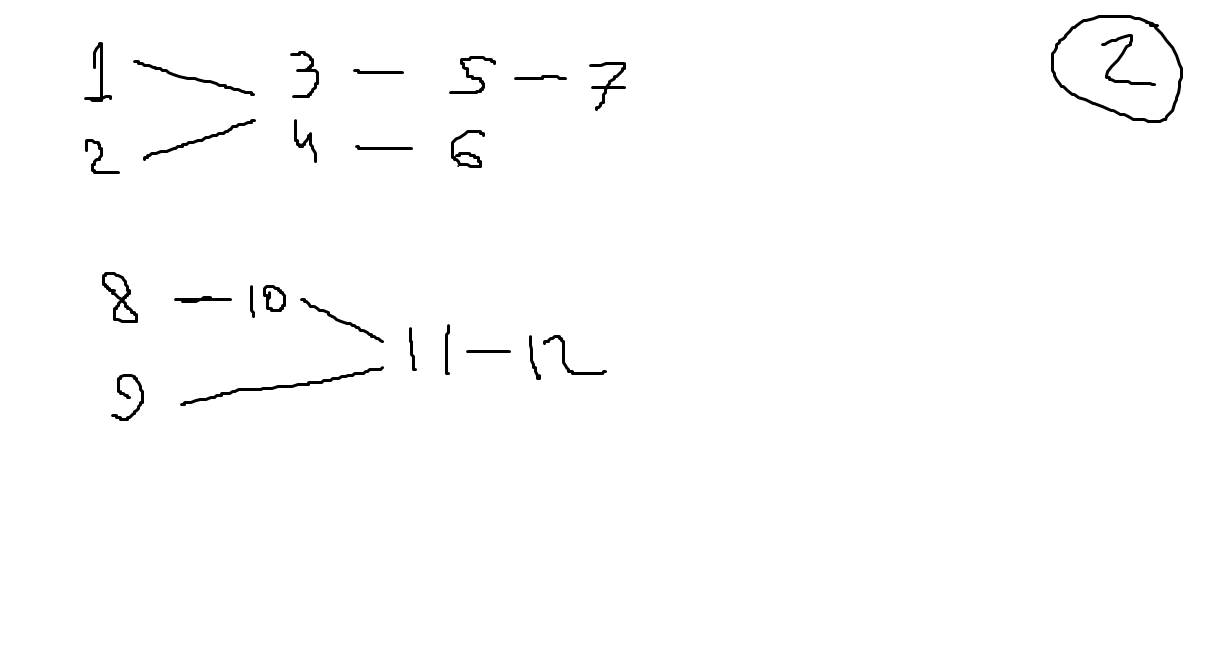 1 3 — 5 — 7 2
2 4 — 6
8 — 10
11 — 12
9